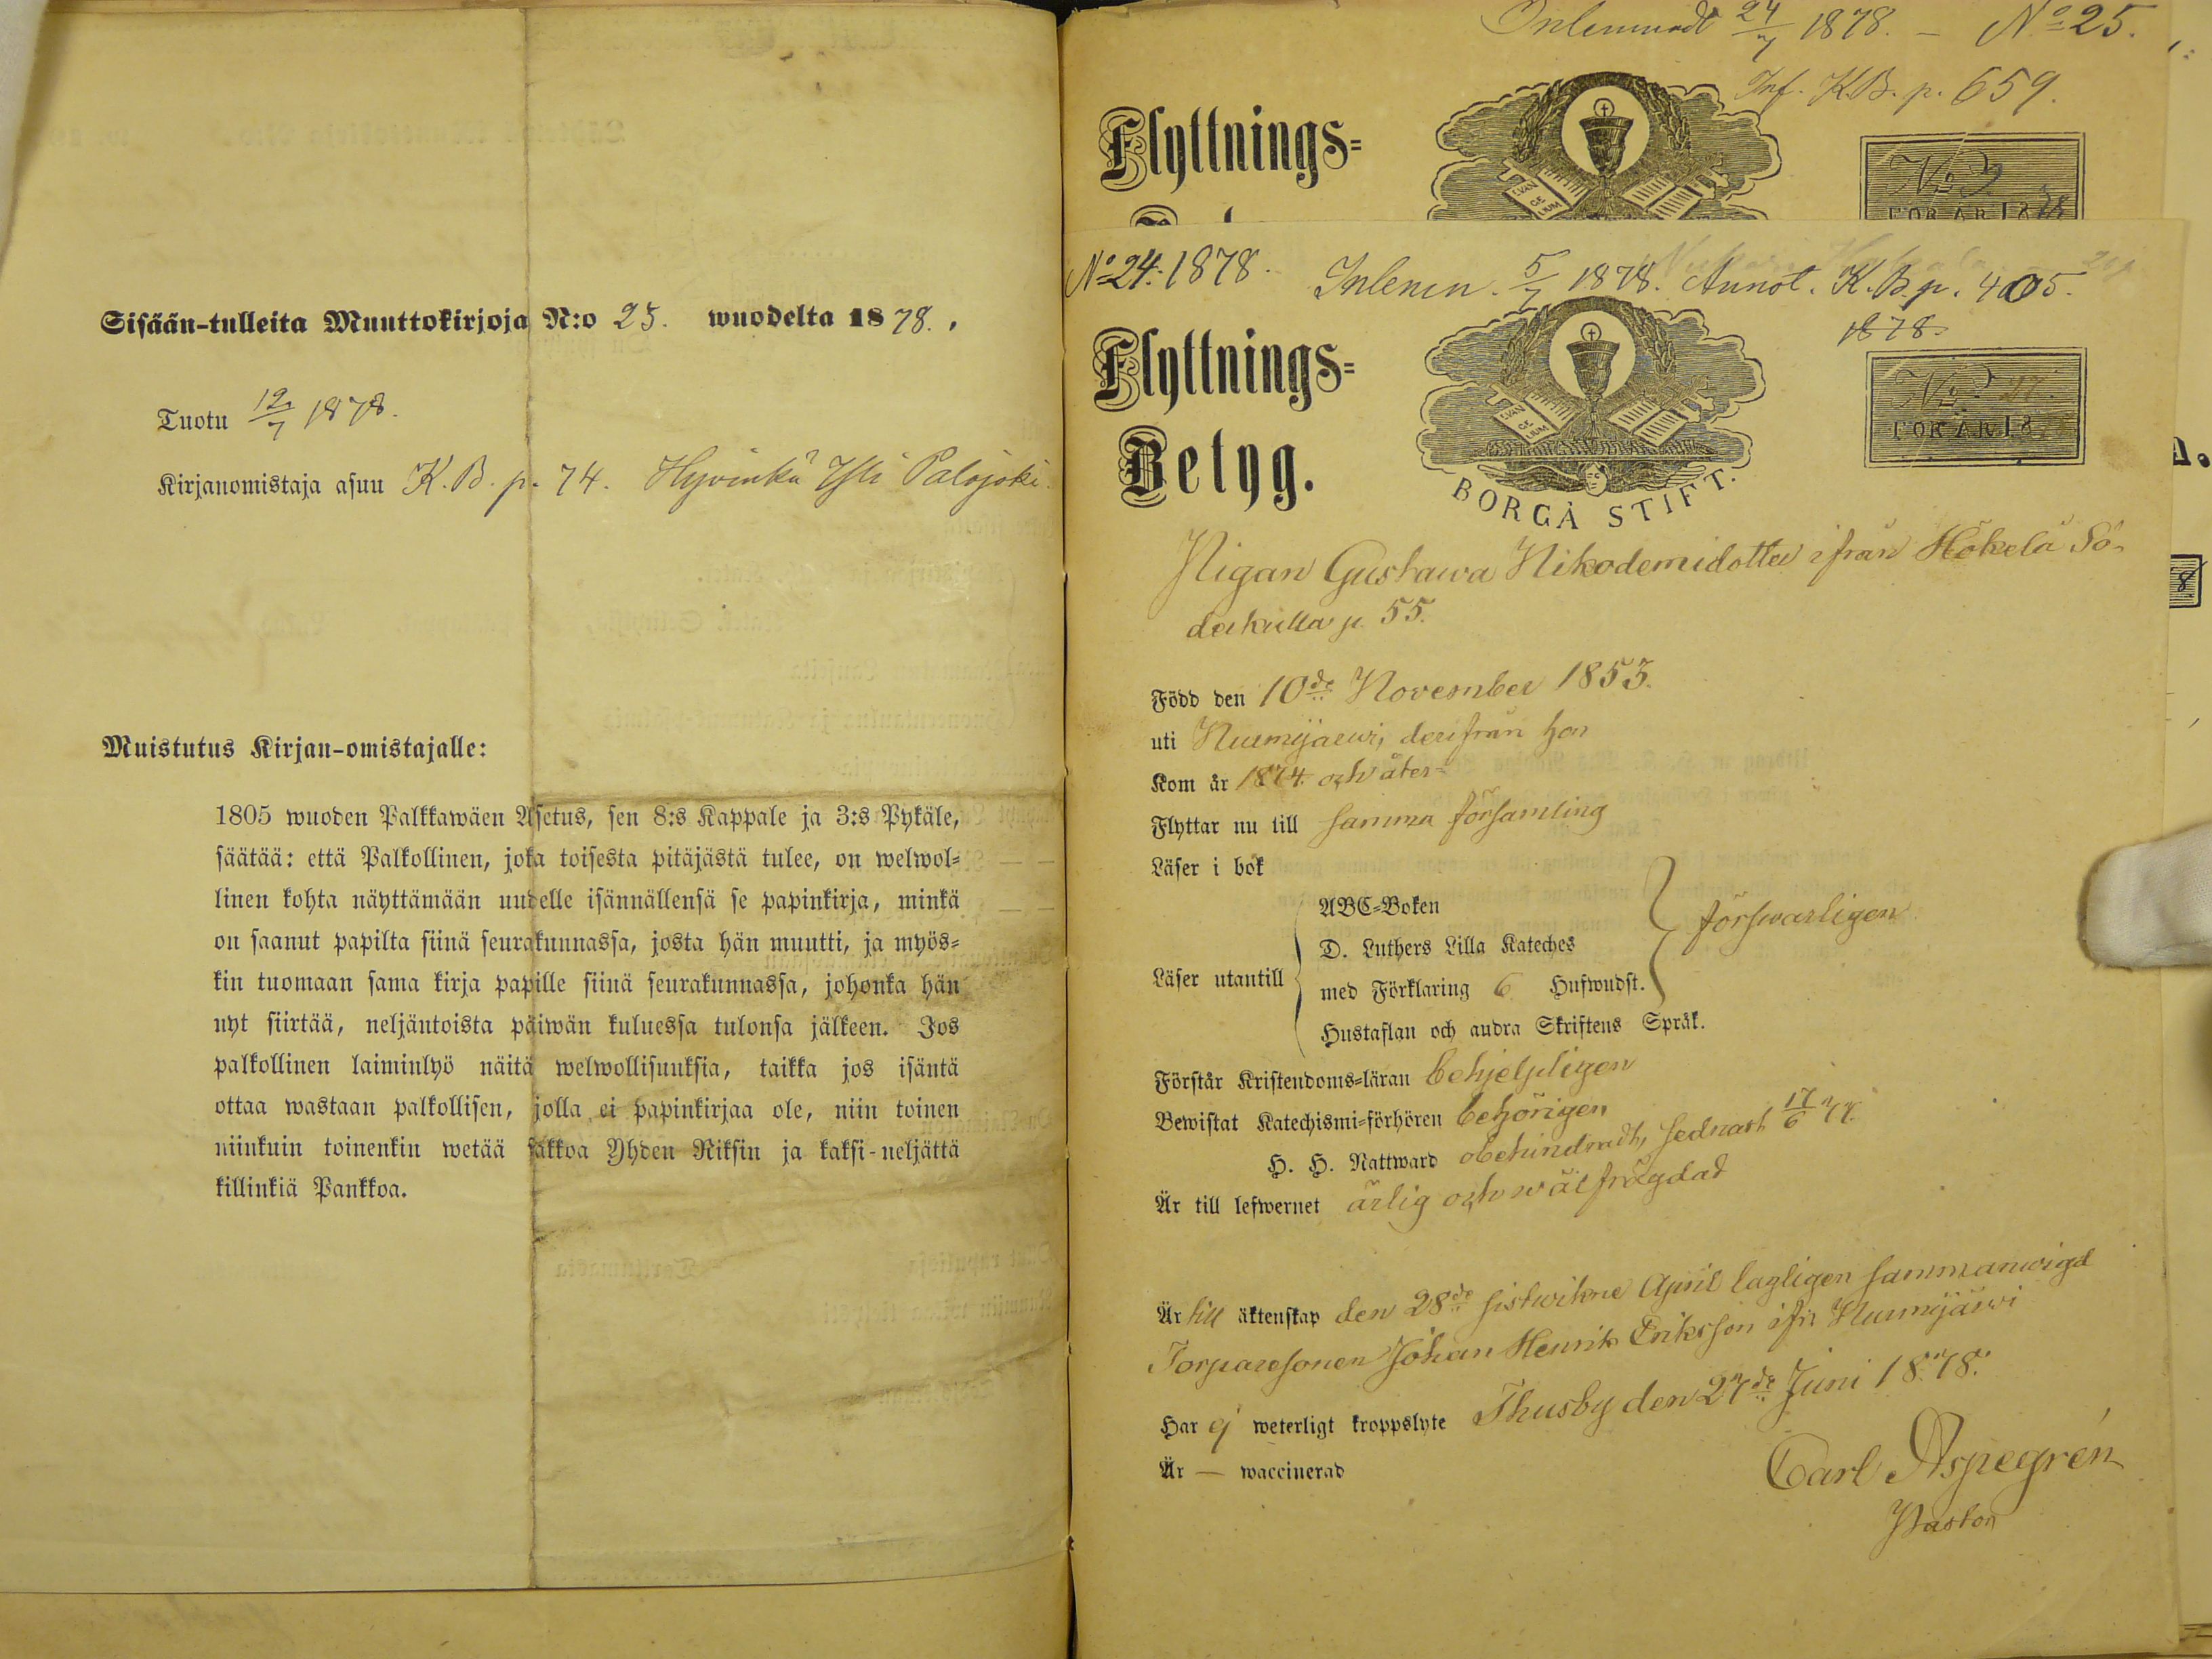 Sisään-tulleita Muuttokirjoja N:o 25. wuodelta 1878.
Tuotu 12/7 1878.
Kirjanomistaja asuu K. B. p. 74. Hyvinkä Yli Palojoki.
Muistutus Kirjan-omistajalle:
1805 wuoden Palkkawäen Asetus, sen 8:s Kappale ja 3:s Pykäle,
säätää: että Palkollinen, joka toisesta pitäjästä tulee, on welwol-
linen kohta näyttämään uudelle isännällensä se papinkirja, minkä
on saanut papilta siinä seurakunnassa, josta hän muutti, ja myös-
kin tuomaan sama kirja papille siinä seurakunnassa, johonka hän
nyt siirtää, neljäntoista päiwän kuluessa tulonsa jälkeen. Jos
palkollinen laiminlyö näitä welwollisuuksia, taikka jos isäntä
ottaa wastaan palkollisen, jolla ei papinkirjaa ole, niin toinen
niinkuin toinenkin wetää sakkoa Yhden Riksin ja kaksi-neljättä
killinkiä Pankkoa.
Inlemnadt 24/7 1878. – No 25.
Inf. K.B. p. 659.
Flyttnings-
EVAN GE LIUM
No
FÖR ÅR 1878
No 24. 1878. Inlemn. 5/7 1878. Annot. K. B. p. 405.
1878.
Flyttnings-
Betyg.
EVAN GE LIUM
BORGÅ STIFT.
No 27.
FÖR ÅR 18
Pigan Gustawa Nikodemidotter ifrån Hökelä Sö-
derkulla p. 55.
Född den 10de November 1853.
uti Nurmijärwi, derifrån hon
Kom år 1874. och åter-
Flyttar nu till samma församling
Läser i bok
Läser utantill
ABC-Boken
D. Luthers Lilla Kateches
med Förklaring 6 Hufwudst.
Hustaflan och andra Skriftens Språk.
försvarligen
Förstår Kristendoms-läran behjelpligen
Bewistat Katechismi-förhören behörigen
H. H. Nattward obehindradt, sednast 17/6 77.
Är till lefwernet ärlig och wälfrägdad
Är till äktenskap den 28de sistwikne April lagligen sammanwigd
Torparesonen Johan Henrik Eriksson ifr. Nurmijärwi
Har ej weterligt kroppslyte Thusby den 27de Juni 1878.
Är — waccinerad
Carl Aspegrén
Pastor